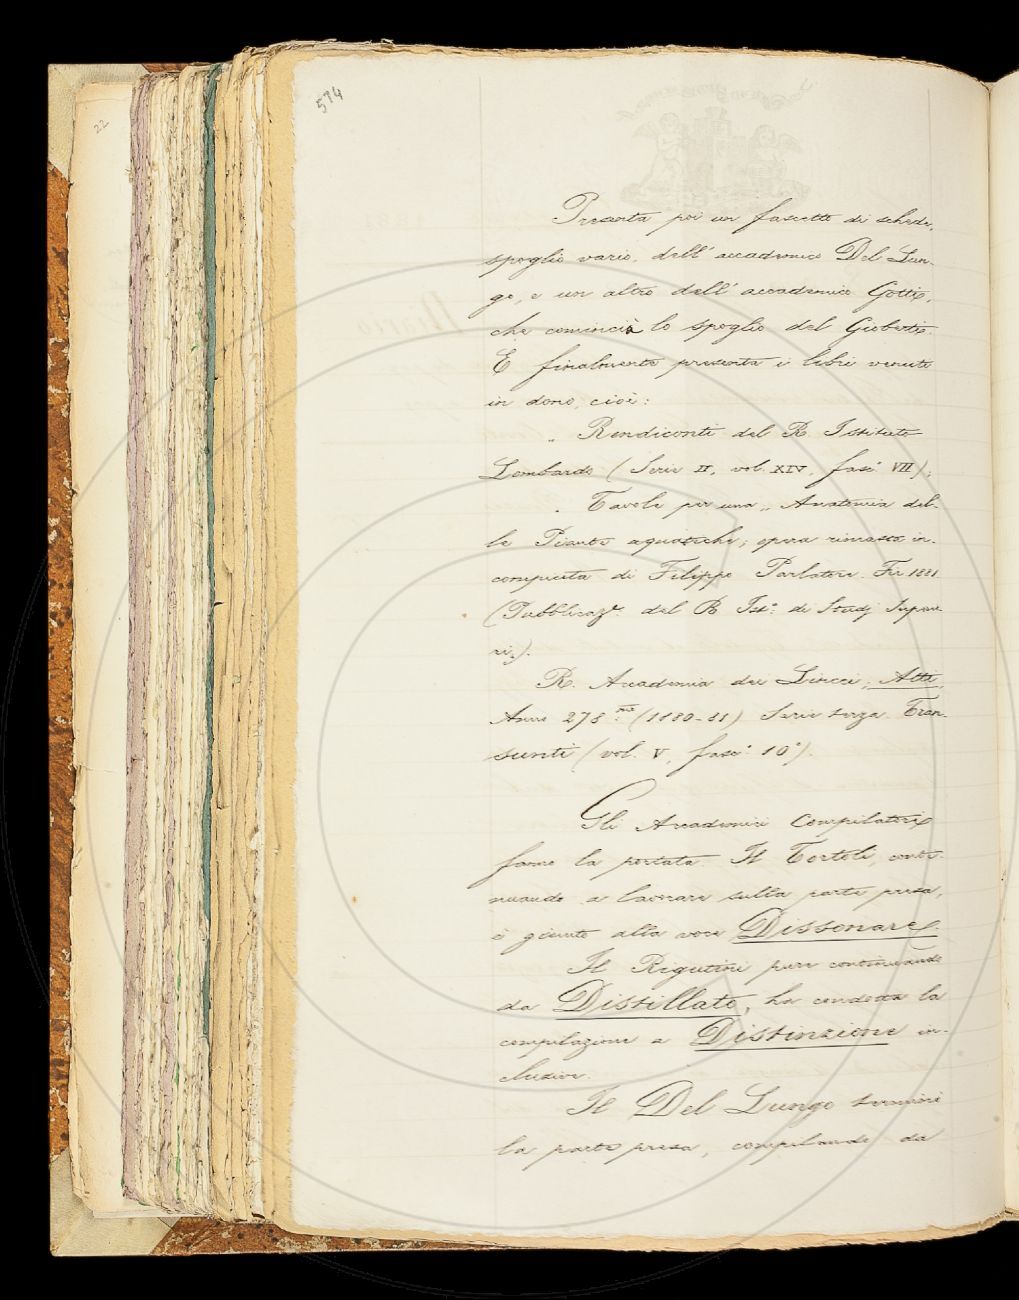 22
574
Presenta poi un fascetto di schede,
spoglio vario, dell' accademico Del Lun-
go, e un altro dell' accademico Gotti,
che comincia lo spoglio del Gioberti.
E finalmente presenta i libri venuti
in dono, cioè:
Rendiconti del R. Istituto
Lombardo (Serie II, vol. XIV, fasc. VIII);
Tavole per una „ Anatomia del-
le Piante aquatiche; opera rimasta in-
compiuta di Filippo Parlatore. Fir. 1881
(Pubblicaz.e del R. Ist.o di Studj Superio
ri).
R. Accademia dei Lincei, Atti,
Anno 278.mo (1880-81) Serie terza. Tran-
sunti (vol. V, fasc.o 10.o).
Gli Accademici Compilatori
fanno la portata. Il Tortoli, conti-
nuando a lavorare sulla parte presa,
è giunto alla voce Dissonare.
Il Rigutini pure continuando
da Distillato, ha condotta la
compilazione a Distinzione in-
clusive.
Il Del Lungo terminò
la parte presa, compilando da